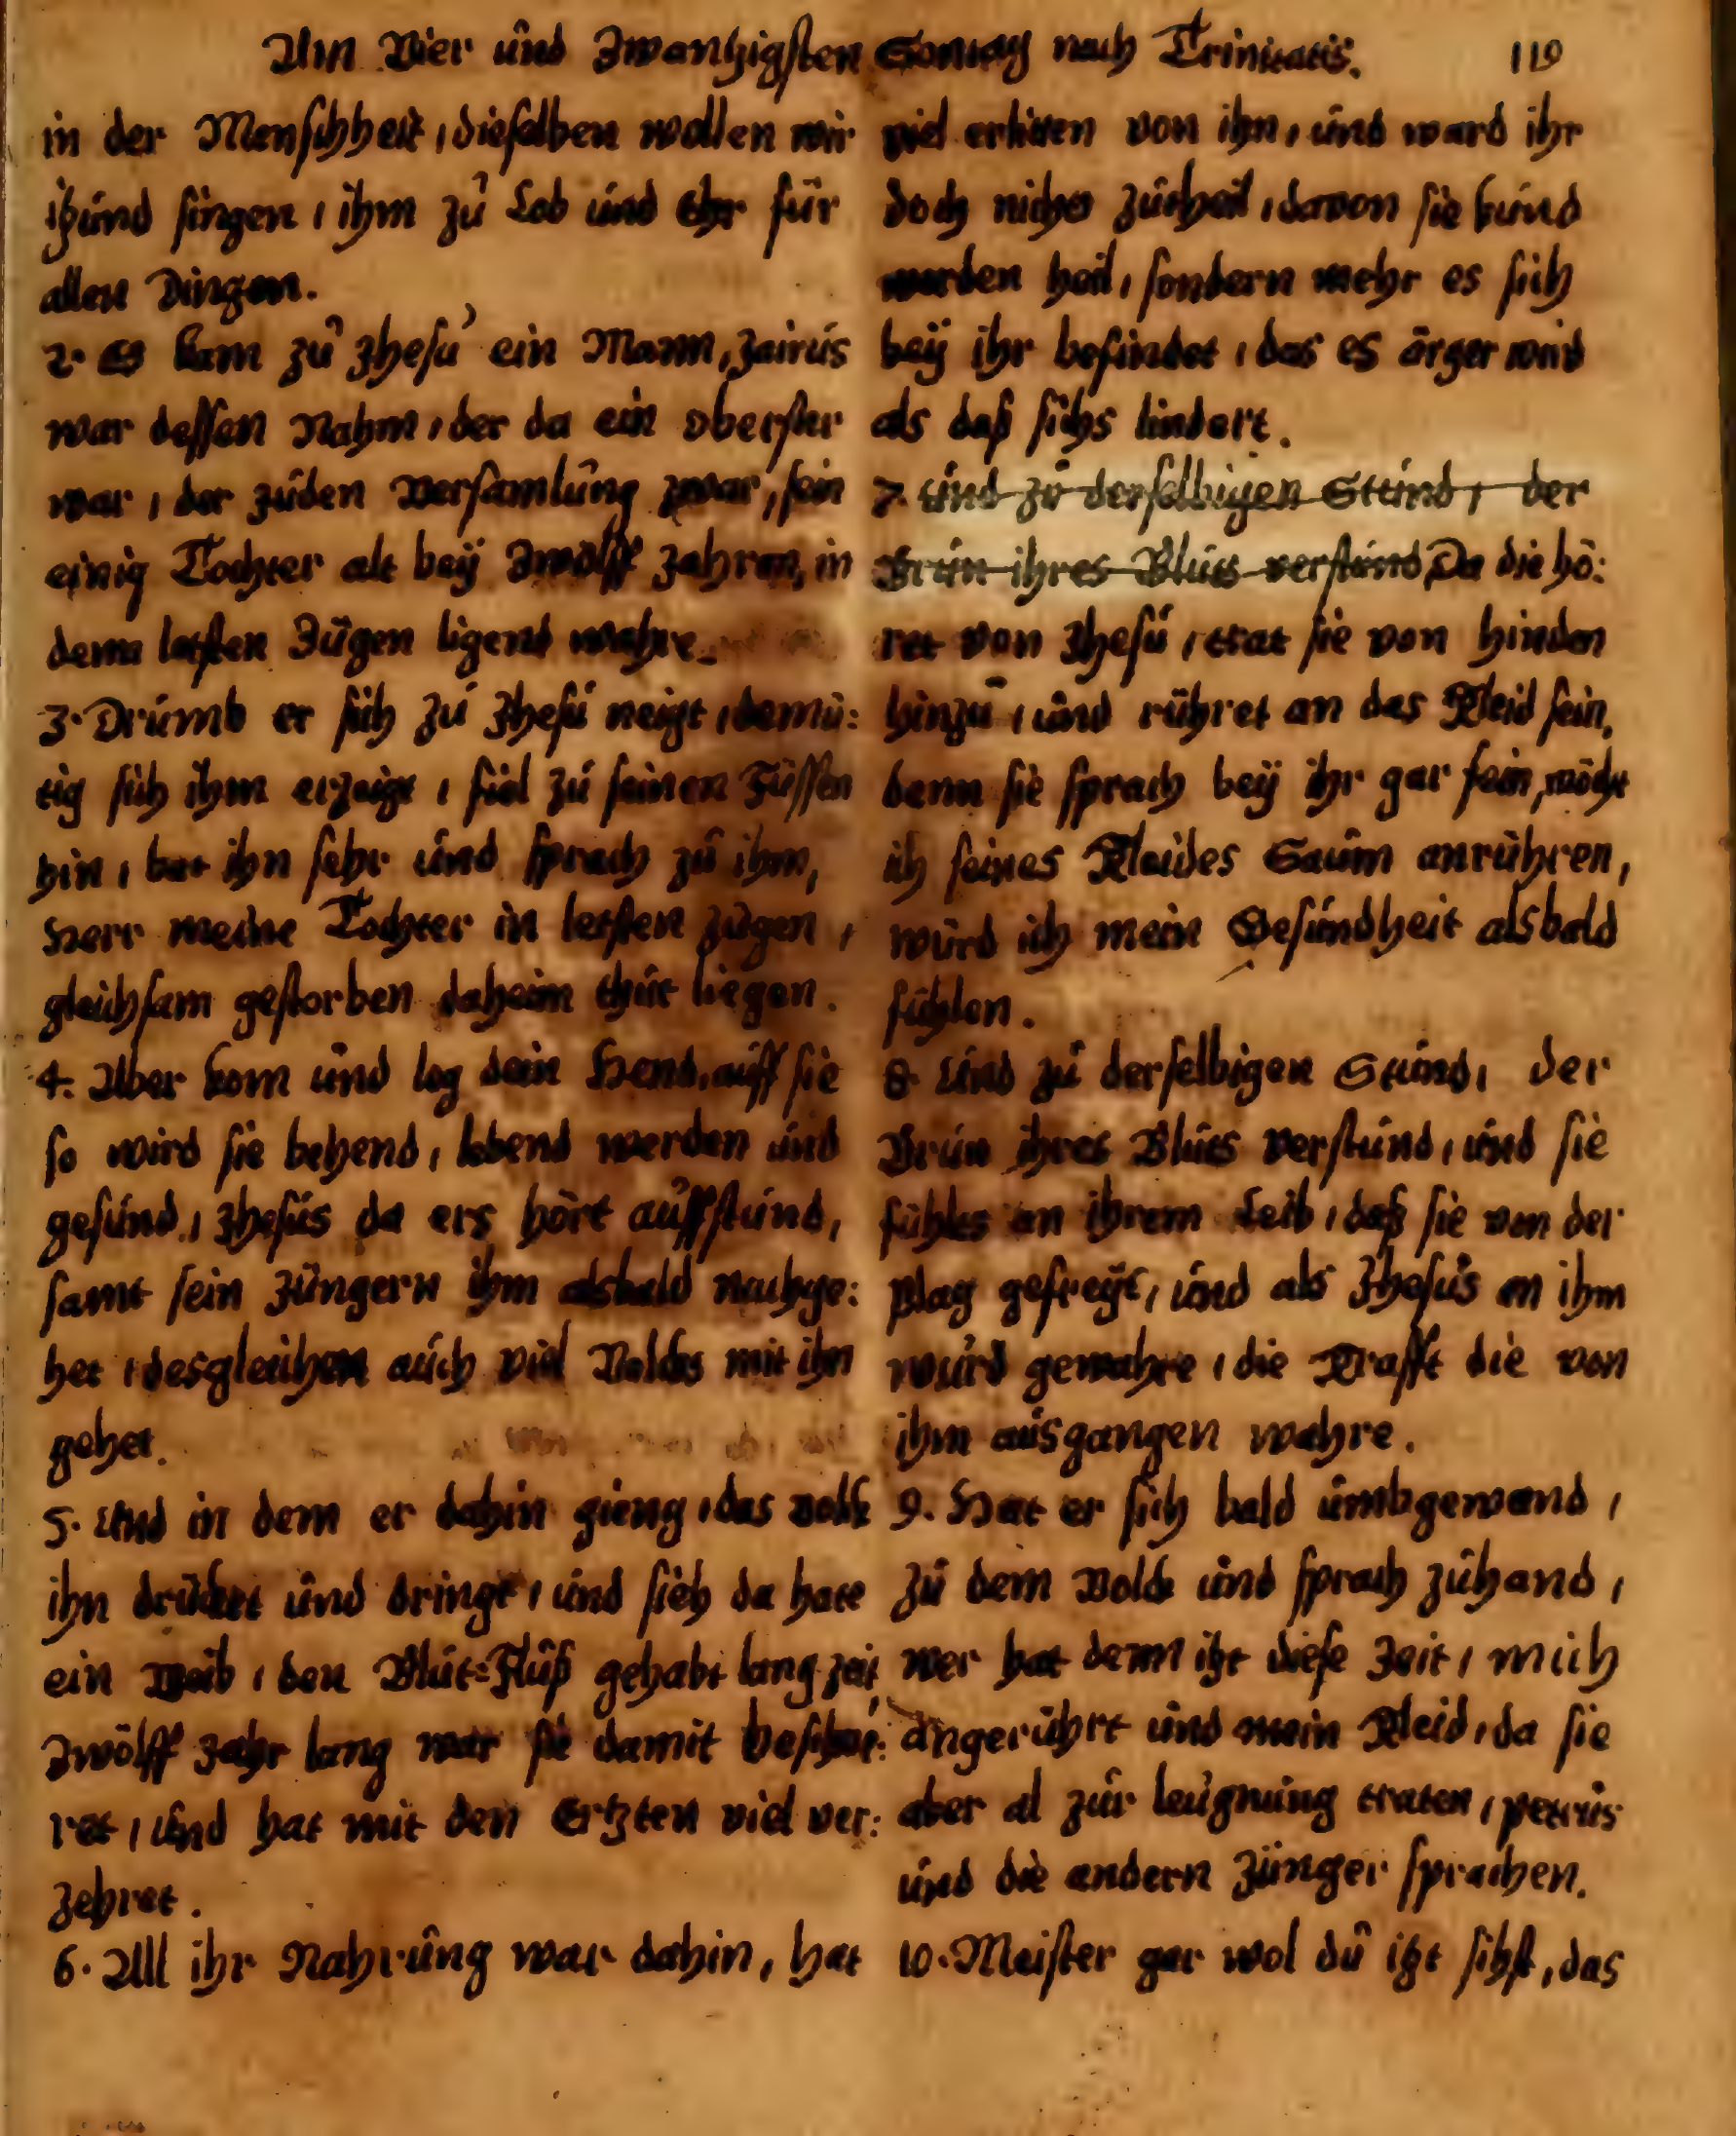 Am Vier und Zwantzigsten Sontag nach Trinitatis. 119
in der Menschheit, dieselben wollen wir
itzund singen, ihm zu Lob und Ehr für
allen Dingen.
2. Es kam zu Jhesu ein Mann, Jairus
war dessen Nahm, der da ein oberster
war, der Juden versamlung zwar, sein
einig Tochter alt bey Zwölff Jahren, in
denn letsten Zügen ligend wahre.
3. Drumb er sich zu Jhesu neigt, demü:
tig sich ihm erzeigt, fiel zu seinen Füssen
hin, bat ihn sehr und sprach zu ihm,
Herr meine Tochter in letsten zügen,
gleichsam gestorben daheim thut liegen.
4. Aber kom und leg dein Hend, auff sie
so wird sie behend, lebend werden und
gesund, Jhesus da ers hört auffstund,
samt sein Jüngern ihm alsbald nachge:
het, desgleichen auch viel Volcks mit ihn
gehet.
5. Und in dem er dahin gieng, das volk
ihn drücket und dringt, und sieh da hate
ein Weib, den Blut=Fluß gehabt lang zeit,
Zwölff Jahr lang war sie damit beschwe:
ret, und hat mit den Ertzten viel ver:
zehret.
6. All ihr Nahrung war dahin, hat
viel erlitten von ihn, und ward ihr
doch nichts zutheil, davon sie kund
werden heil, sondern mehr es sich
bey ihr befindet, das es ärger wird
als daß sichs lindert.
7. Und zu derselbigen Stund, der
Brun ihres Bluts verstund, Da die hö:
ret von Jhesu, trat sie von hinden
hinzu, und rühret an das Kleid sein,
denn sie sprach bey ihr gar fein, möcht
ich seines Kleides Saum anrühren,
würd ich mein Gesundheit alsbald
fühlen.
8. Und zu derselbigen Stund, der
Brun ihres Bluts verstund, und sie
fühlts an ihrem Leib, daß sie von der
plag gefreyt, und als Jhesus an ihm
wurd gewahre, die Krafft die von
ihm ausgangen wahre.
9. Hat er sich bald umbgewand,
zu dem Volck und sprach zuhand,
wer hat denn itzt diese Zeit, mich
angerührt und mein Kleid, da sie
aber al zur leugnung traten, petrus
und die andern Jünger sprachen.
10. Meister gar wol du itzt sihst, das